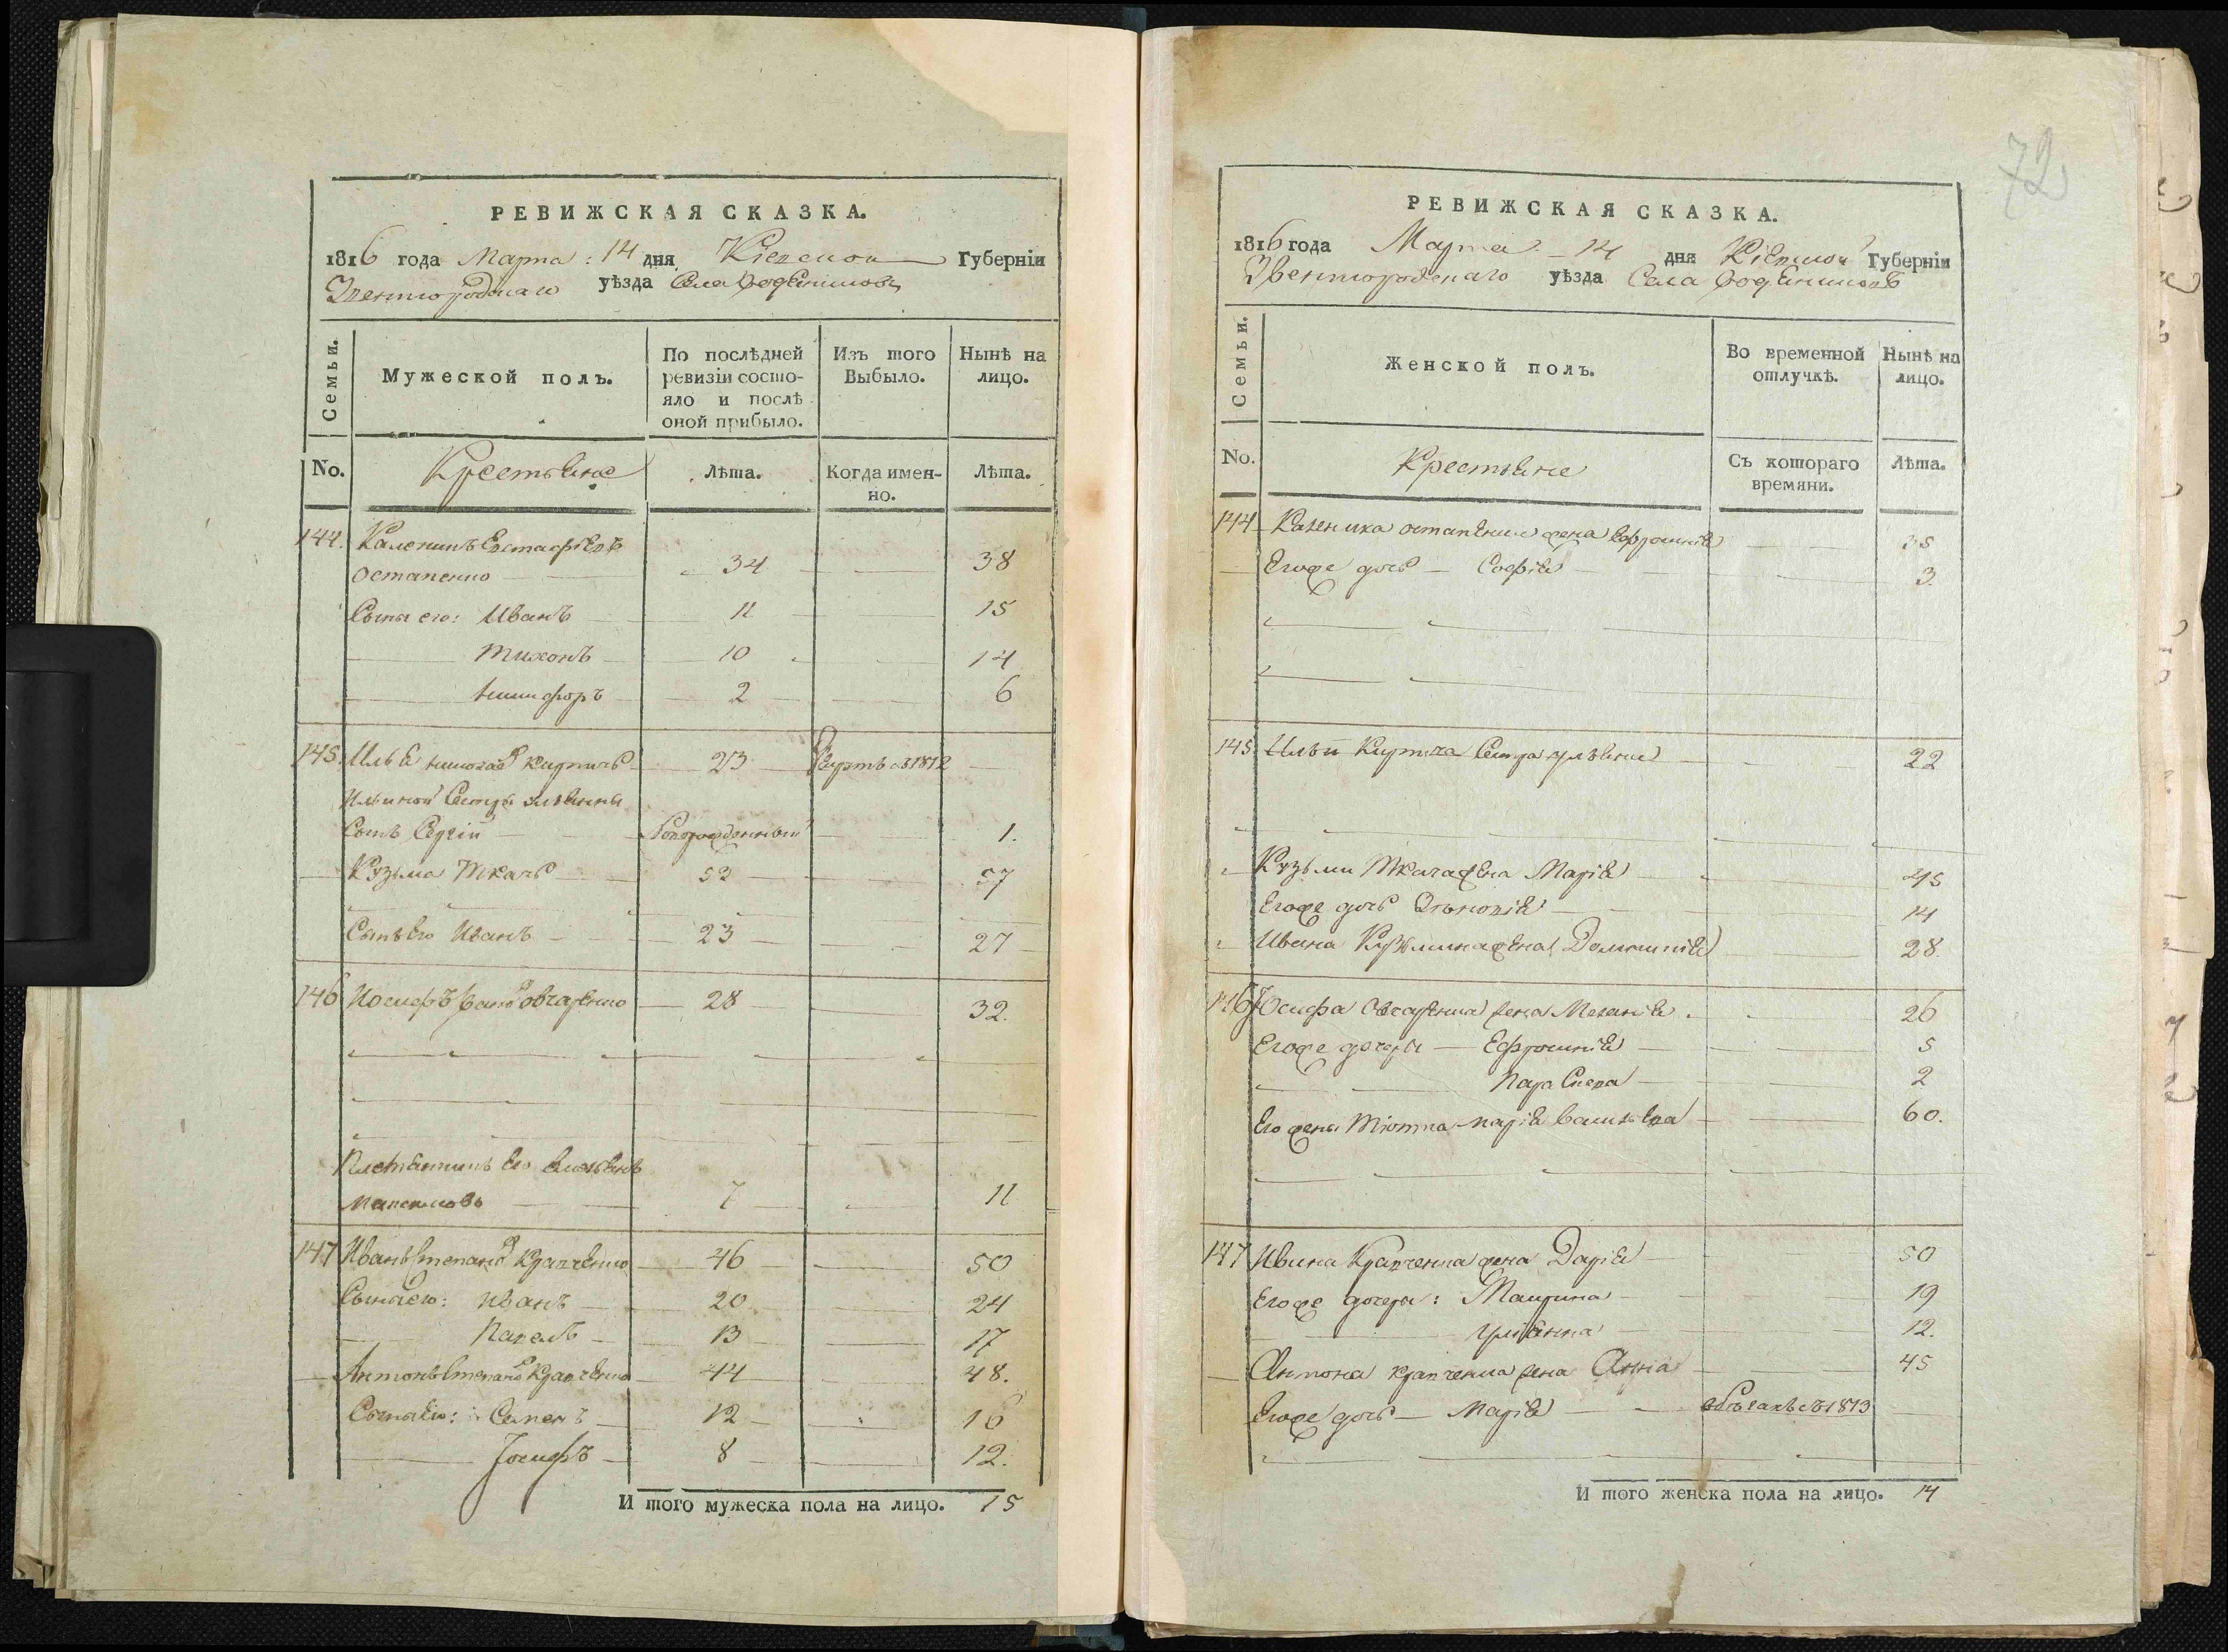 РЕВИЖСКАЯ СКАЗКА.
1816 года Марта: 14 дня Кіевской Губерніи
Звенигородскаго уѣзда Села
Семьи.
Мужеской полъ.
По послѣдней ревизіи состо-
яло и послѣ
оной прибыло.
Изъ того
Выбыло.
Нынѣ на
лицо.
No.
Крестьяне
Лѣта.
Когда имен-
но.
Лѣта.
144. Каленикъ Евстафіевъ
Остапенко 34 38
Сыны его: Иванъ 11 15
Тихонъ 10 14
Никифоръ 2 6
145. Илья Кирпичъ 23 1812
Ильиной Сестры
Сынъ Сергій Новорожденный 1.
Кузьма Ткачъ 53 57
Сынъ Его Иванъ 23 27
146 Иосифъ Овчаренко 28 32.
Племянникъ Его
Максимовъ 7 11
147 Иванъ Степановъ Кравченко 46 50
Сыны Его: Иванъ 20 24
Павелъ 13 17
Антонъ Степановъ Кравченко 44 48.
Сыны Его: Семенъ 12 16
Іосифъ 8 12.
И того мужеска пола на лицо. 15
72
РЕВИЖСКАЯ СКАЗКА.
1816 года Марта 14 дня Кіевской Губерніи
Звенигородскаго уѣзда Села
Семьи.
Женской полъ.
Во временной
отлучкѣ.
Нынѣ на
лицо.
No.
Крестьяне
Съ котораго
времяни.
Лѣта.
144 Каленика Остапенка жена Ефросинія 35
Егоже дочь Софія 3
145 Ильи Кирпича Сестра 22
Кузьмы Ткача жена Марія 45
Егоже дочь 14
Ивана Кузьмина жена Домникія 28.
146 Юсифа Овчаренка жена Меланія 26
Егоже дочери Ефросинія 5
Параскева 2
Его жены тіотка Марія Васильева 60.
147 Ивана Кравченка жена Дарія 50
Егоже дочери: Маврина 19
Уліянна 12.
Антона Кравченка жена Анна 45
Егоже дочь Марія 1813
И того женска пола на лицо. 14